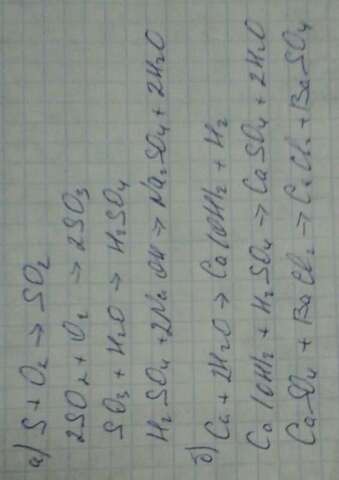 а) S + O2 → SO2
2SO2 + O2 → 2SO3
SO3 + H2O → H2SO4
H2SO4 + 2NaOH → Na2SO4 + 2H2O
б) Ca + 2H2O → Ca(OH)2 + H2
Ca(OH)2 + H2SO4 → CaSO4 + 2H2O
CaSO4 + BaCl2 → CaCl2 + BaSO4